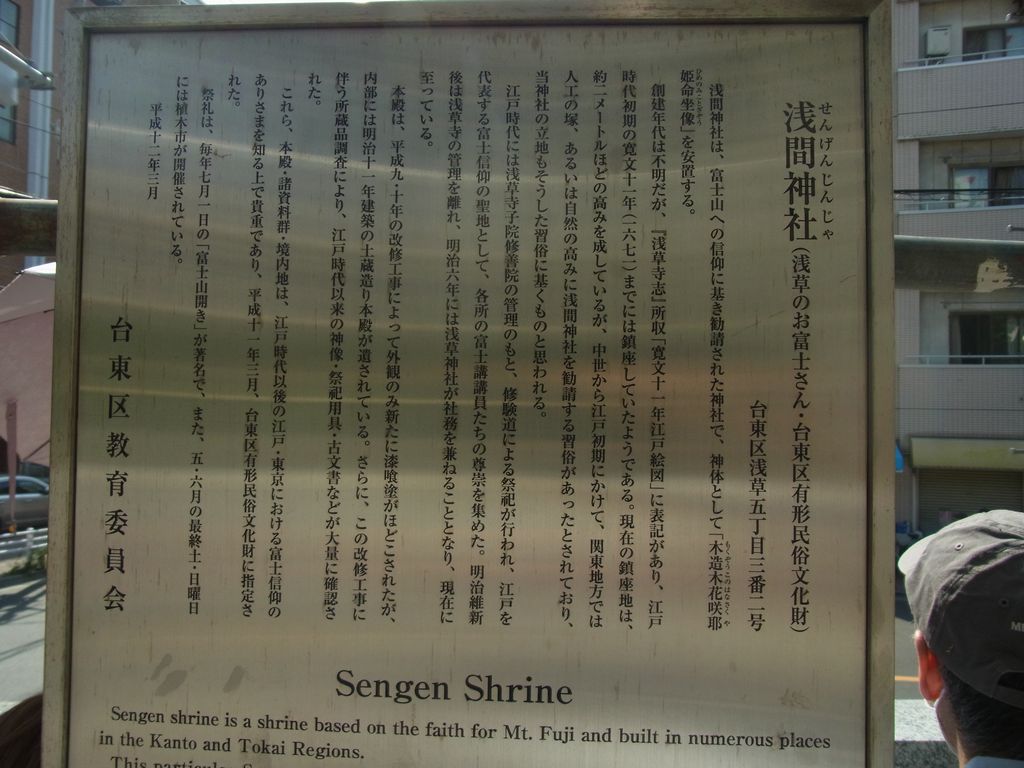 せんげんじんじゃ
浅間神社(浅草のお富士さん・台東区有形民俗文化財)
台東区浅草五丁目三番二号
浅間神社は、富士山への信仰に基き勧請された神社で、神体として「木造木花咲耶
姫命坐像」を安置する。
創建年代は不明だが、『浅草寺志』所収「寛文十一年江戸絵図」に表記があり、江戸
時代初期の寛文十一年(一六七一)までには鎮座していたようである。現在の鎮座地は、
約二メートルほどの高みを成しているが、中世から江戸初期にかけて、関東地方では
人工の塚、あるいは自然の高みに浅間神社を勧請する習俗があったとされており、
当神社の立地もそうした習俗に基くものと思われる。
江戸時代には浅草寺子院修善院の管理のもと、修験道による祭祀が行われ、江戸を
代表する富士信仰の聖地として、各所の富士講講員たちの尊崇を集めた。明治維新
後は浅草寺の管理を離れ、明治六年には浅草神社が社務を兼ねることとなり、現在に
至っている。
本殿は、平成九・十年の改修工事によって外観のみ新たに漆喰塗がほどこされたが、
内部には明治十一年建築の土蔵造り本殿が遺されている。さらに、この改修工事に
伴う所蔵品調査により、江戸時代以来の神像・祭祀用具・古文書などが大量に確認さ
れた。
これら、本殿・諸資料群・境内地は、江戸時代以後の江戸・東京における富士信仰の
ありさまを知る上で貴重であり、平成十一年三月、台東区有形民俗文化財に指定さ
れた。
祭礼は、毎年七月一日の「富士山開き」が著名で、また、五・六月の最終土・日曜日
には植木市が開催されている。
平成十二年三月
台東区教育委員会
Sengen Shrine
Sengen shrine is a shrine based on the faith for Mt. Fuji and built in numerous places
in the Kanto and Tokai Regions.
This particular